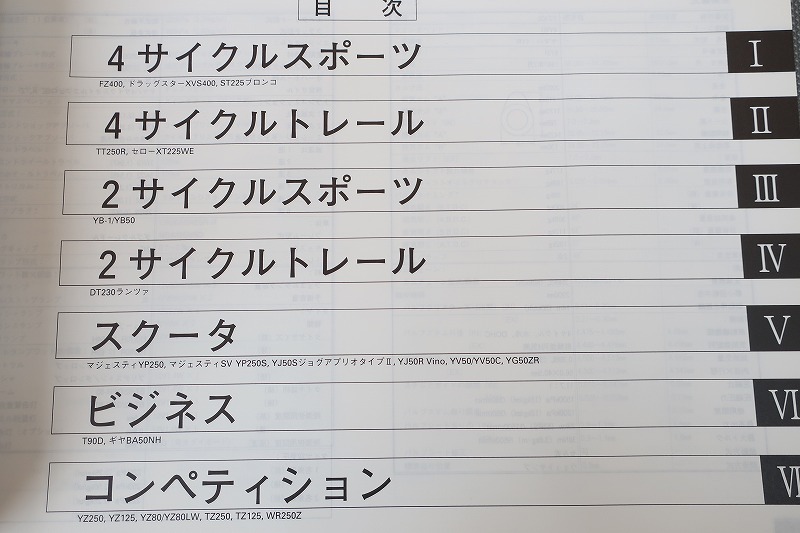 目 次
4サイクルスポーツ Ⅰ
FZ400, ドラッグスターXVS400, ST225ブロンコ
4サイクルトレール Ⅱ
TT250R, セローXT225WE
2サイクルスポーツ Ⅲ
YB-1/YB50
2サイクルトレール Ⅳ
DT230ランツァ
スクータ Ⅴ
マジェスティYP250, マジェスティSV YP250S, YJ50SジョグアプリオタイプⅡ, YJ50R Vino, YV50/YV50C, YG50ZR
ビジネス Ⅵ
T90D, ギヤBA50NH
コンペティション
YZ250, YZ125, YZ80/YZ80LW, TZ250, TZ125, WR250Z